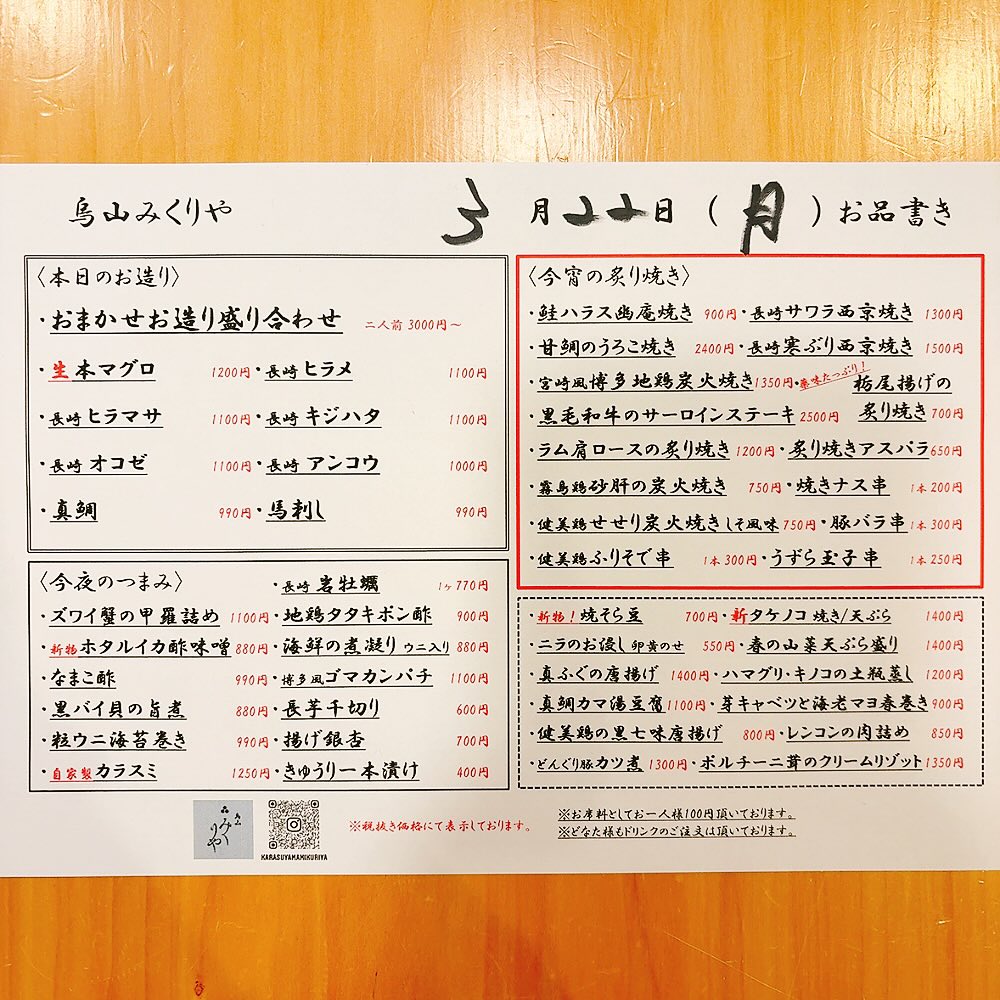 烏山みくりや 3月22日(月)お品書き
〈本日のお造り〉
・おまかせお造り盛り合わせ 二人前 3000円〜
・生本マグロ 1200円・長崎ヒラメ 1100円
・長崎ヒラマサ 1100円・長崎キジハタ 1100円
・長崎オコゼ 1100円・長崎アンコウ 1000円
・真鯛 990円・馬刺し 990円
〈今夜のつまみ〉 ・長崎岩牡蠣 1ヶ770円
・ズワイ蟹の甲羅詰め 1100円・地鶏タタキポン酢 900円
・新物ホタルイカ酢味噌 880円・海鮮の煮凝り ウニ入り 880円
・なまこ酢 990円・博多風ゴマカンパチ 1100円
・黒バイ貝の旨煮 880円・長芋千切り 600円
・粒ウニ海苔巻き 990円・揚げ銀杏 700円
・自家製カラスミ 1250円・きゅうり一本漬け 400円
〈今宵の炙り焼き〉
・鮭ハラス幽庵焼き 900円・長崎サワラ西京焼き 1300円
・甘鯛のうろこ焼き 2400円・長崎寒ぶり西京焼き 1500円
・宮崎風博多地鶏炭火焼き 1350円・薬味たっぷり!栃尾揚げの
・黒毛和牛のサーロインステーキ 2500円 炙り焼き 700円
・ラム肩ロースの炙り焼き 1200円・炙り焼きアスパラ 650円
・霧島鶏砂肝の炭火焼き 750円・焼きナス串 1本200円
・健美鶏せせり炭火焼きしそ風味 750円・豚バラ串 1本300円
・健美鶏ふりそで串 1本300円・うずら玉子串 1本250円
・新物!焼そら豆 700円・新タケノコ 焼き/天ぷら 1400円
・ニラのお浸し 卵黄のせ 550円・春の山菜天ぷら盛り 1400円
・真ふぐの唐揚げ 1400円・ハマグリ・キノコの土瓶蒸し 1200円
・真鯛カマ湯豆腐 1100円・芽キャベツと海老マヨ春巻き 900円
・健美鶏の黒七味唐揚げ 800円・レンコンの肉詰め 850円
・どんぐり豚カツ煮 1300円・ポルチーニ茸のクリームリゾット 1350円
みくりや
KARASUYAMAMIKURIYA
※税抜き価格にて表示しております。
※お席料としてお一人様100円頂いております。
※どなた様もドリンクのご注文は頂いております。